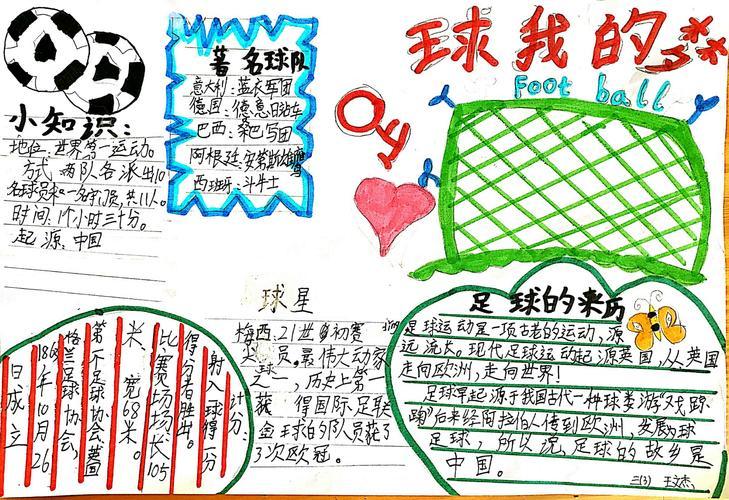 球我的
Foot ball
小知识:
地位:世界第一运动。
方式 两队各派出10
名球员和一名守门员,共11人。
时间:1个小时三十分。
起源:中国
著名球队
意大利:蓝衣军团
德国:德意日战车
巴西:桑巴写团
阿根廷:安第斯雄鹰
西班牙:斗牛士
球星
梅西,21世
初赛
球员。最伟大动家
之一,历史上第一
获 得国际足联
金球的队员获了
3次欧冠。
计分:
射入一球得一分
得分者胜出。
比赛场场长105
米,宽68米。
第一个足球协会
格兰足球协会,
1863年10月26
日成立
足球的来历
足球运动是一项古老的运动,源
远流长。现代足球运动起源英国,从英国
走向欧洲,走向世界!
足球早起源于我国古代一种球类游戏"蹴
鞠"后来经阿拉伯人传到欧洲,发展球
足球,所以说,足球的故乡是
中国。
三(3) 王文杰